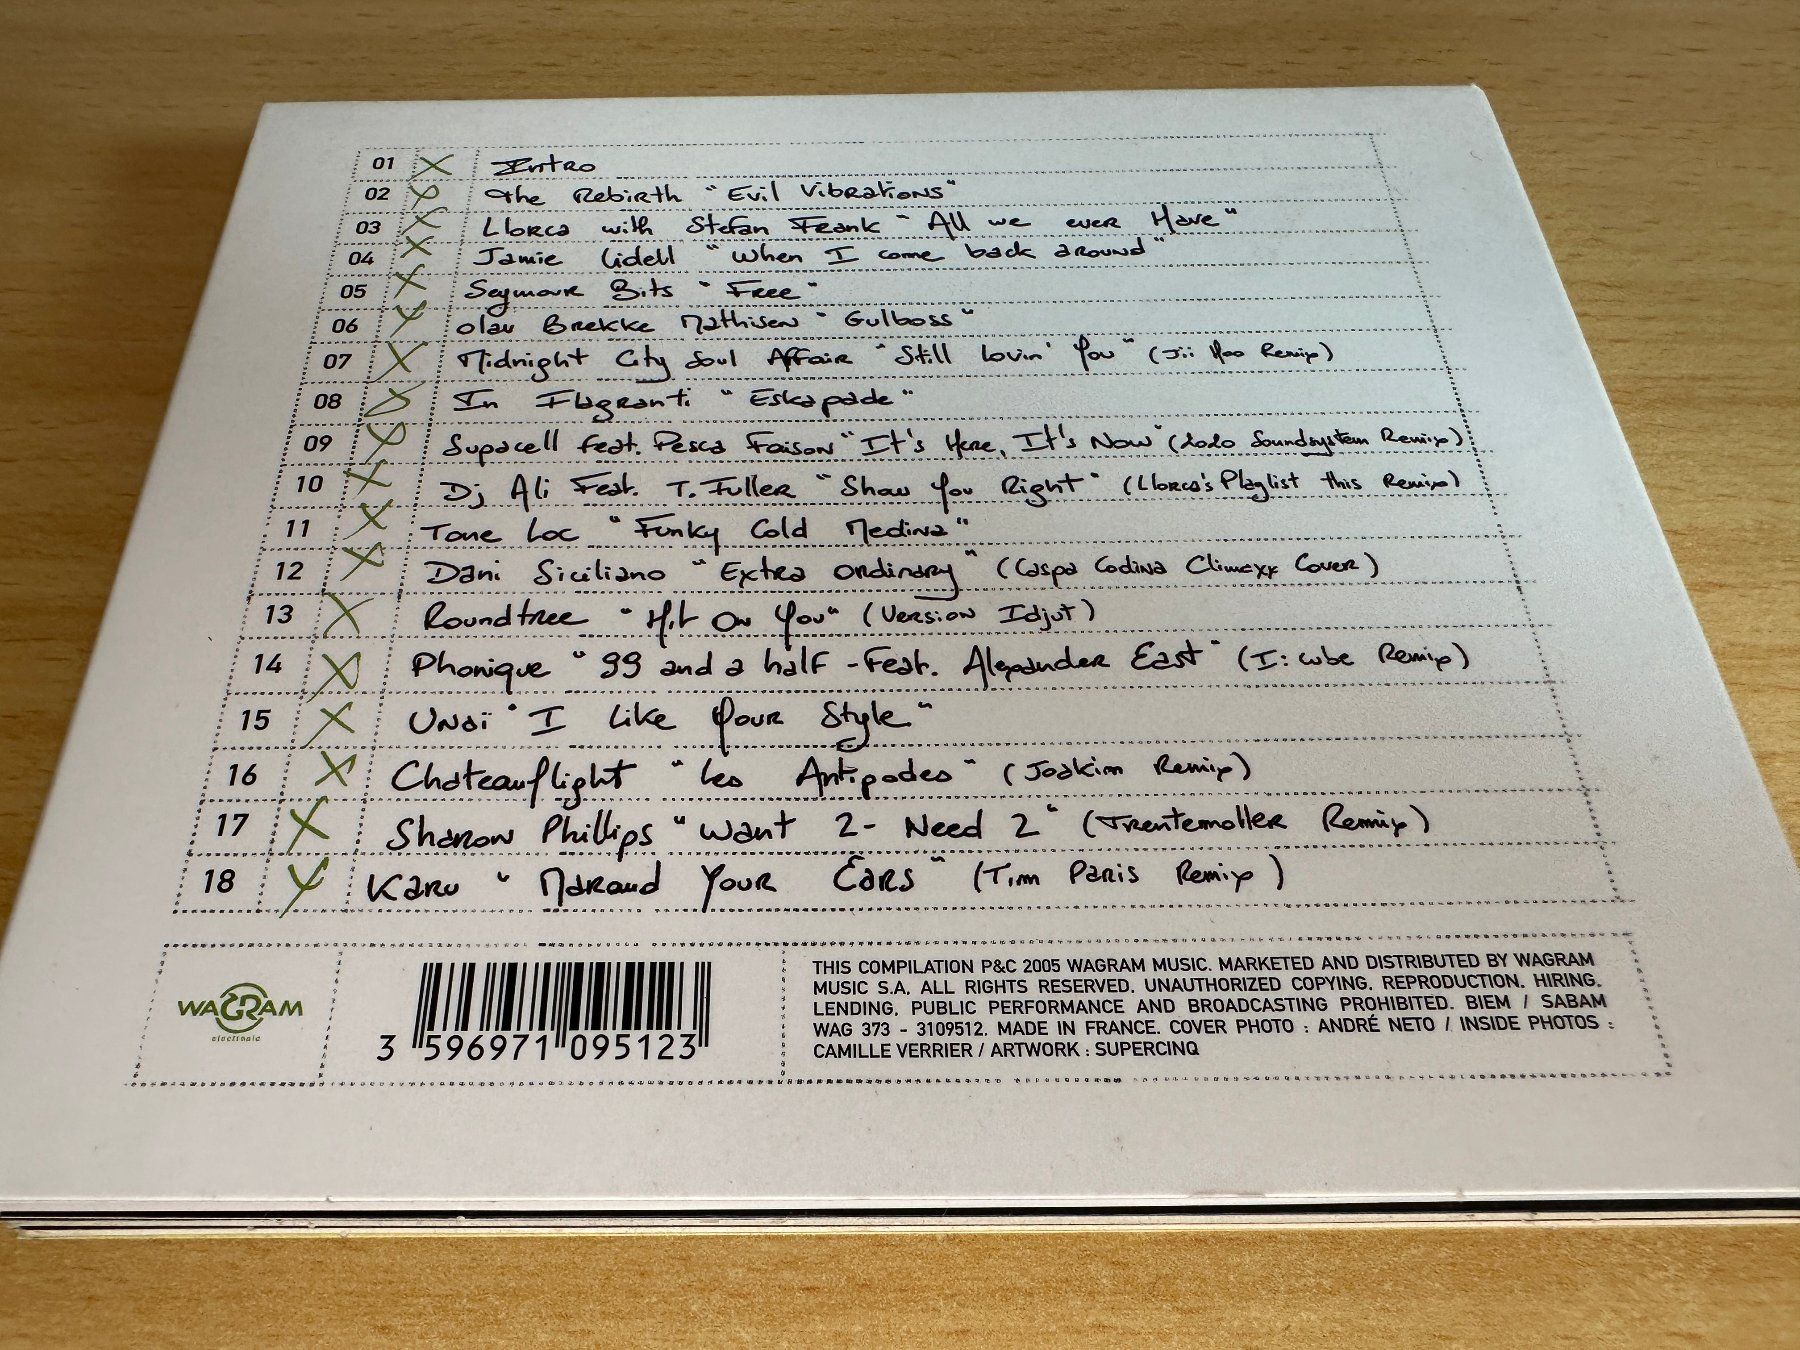 01 X Intro
02 X The Rebirth "Evil Vibrations"
03 X Llorca with Stefan Frank "All we ever Have"
04 X Jamie Lidell "When I come back around"
05 X Seymour Bits "Free"
06 X Olav Brekke Mathisen "Gulboss"
07 X Midnight City Soul Affair "Still Lovin' You" (Jii Hoo Remix)
08 X In Flagranti "Eskapade"
09 X Supacell feat. Pesca Faison "It's Here, It's Now" (Lolo Soundsystem Remix)
10 X Dj Ali Feat. T. Fuller "Show You Right" (Llorca's Playlist this Remix)
11 X Tone Loc "Funky Cold Medina"
12 X Dani Siciliano "Extra Ordinary" (Caspa Codina Climaxx Cover)
13 X Roundtree "Hit On You" (Version Idjut)
14 X Phonique "99 and a half - Feat. Alexander East" (I:cube Remix)
15 X Unaï "I Like Your Style"
16 X Chateauflight "Les Antipodes" (Joakim Remix)
17 X Sharon Phillips "Want 2- Need 2" (Trentemoller Remix)
18 X Karu "Maraud Your Ears" (Tim Paris Remix)
WAGRAM
electronic
3 596971 095123
THIS COMPILATION P&C 2005 WAGRAM MUSIC. MARKETED AND DISTRIBUTED BY WAGRAM
MUSIC S.A. ALL RIGHTS RESERVED. UNAUTHORIZED COPYING. REPRODUCTION. HIRING.
LENDING. PUBLIC PERFORMANCE AND BROADCASTING PROHIBITED. BIEM / SABAM
WAG 373 - 3109512. MADE IN FRANCE. COVER PHOTO : ANDRÉ NETO / INSIDE PHOTOS :
CAMILLE VERRIER / ARTWORK : SUPERCINQ